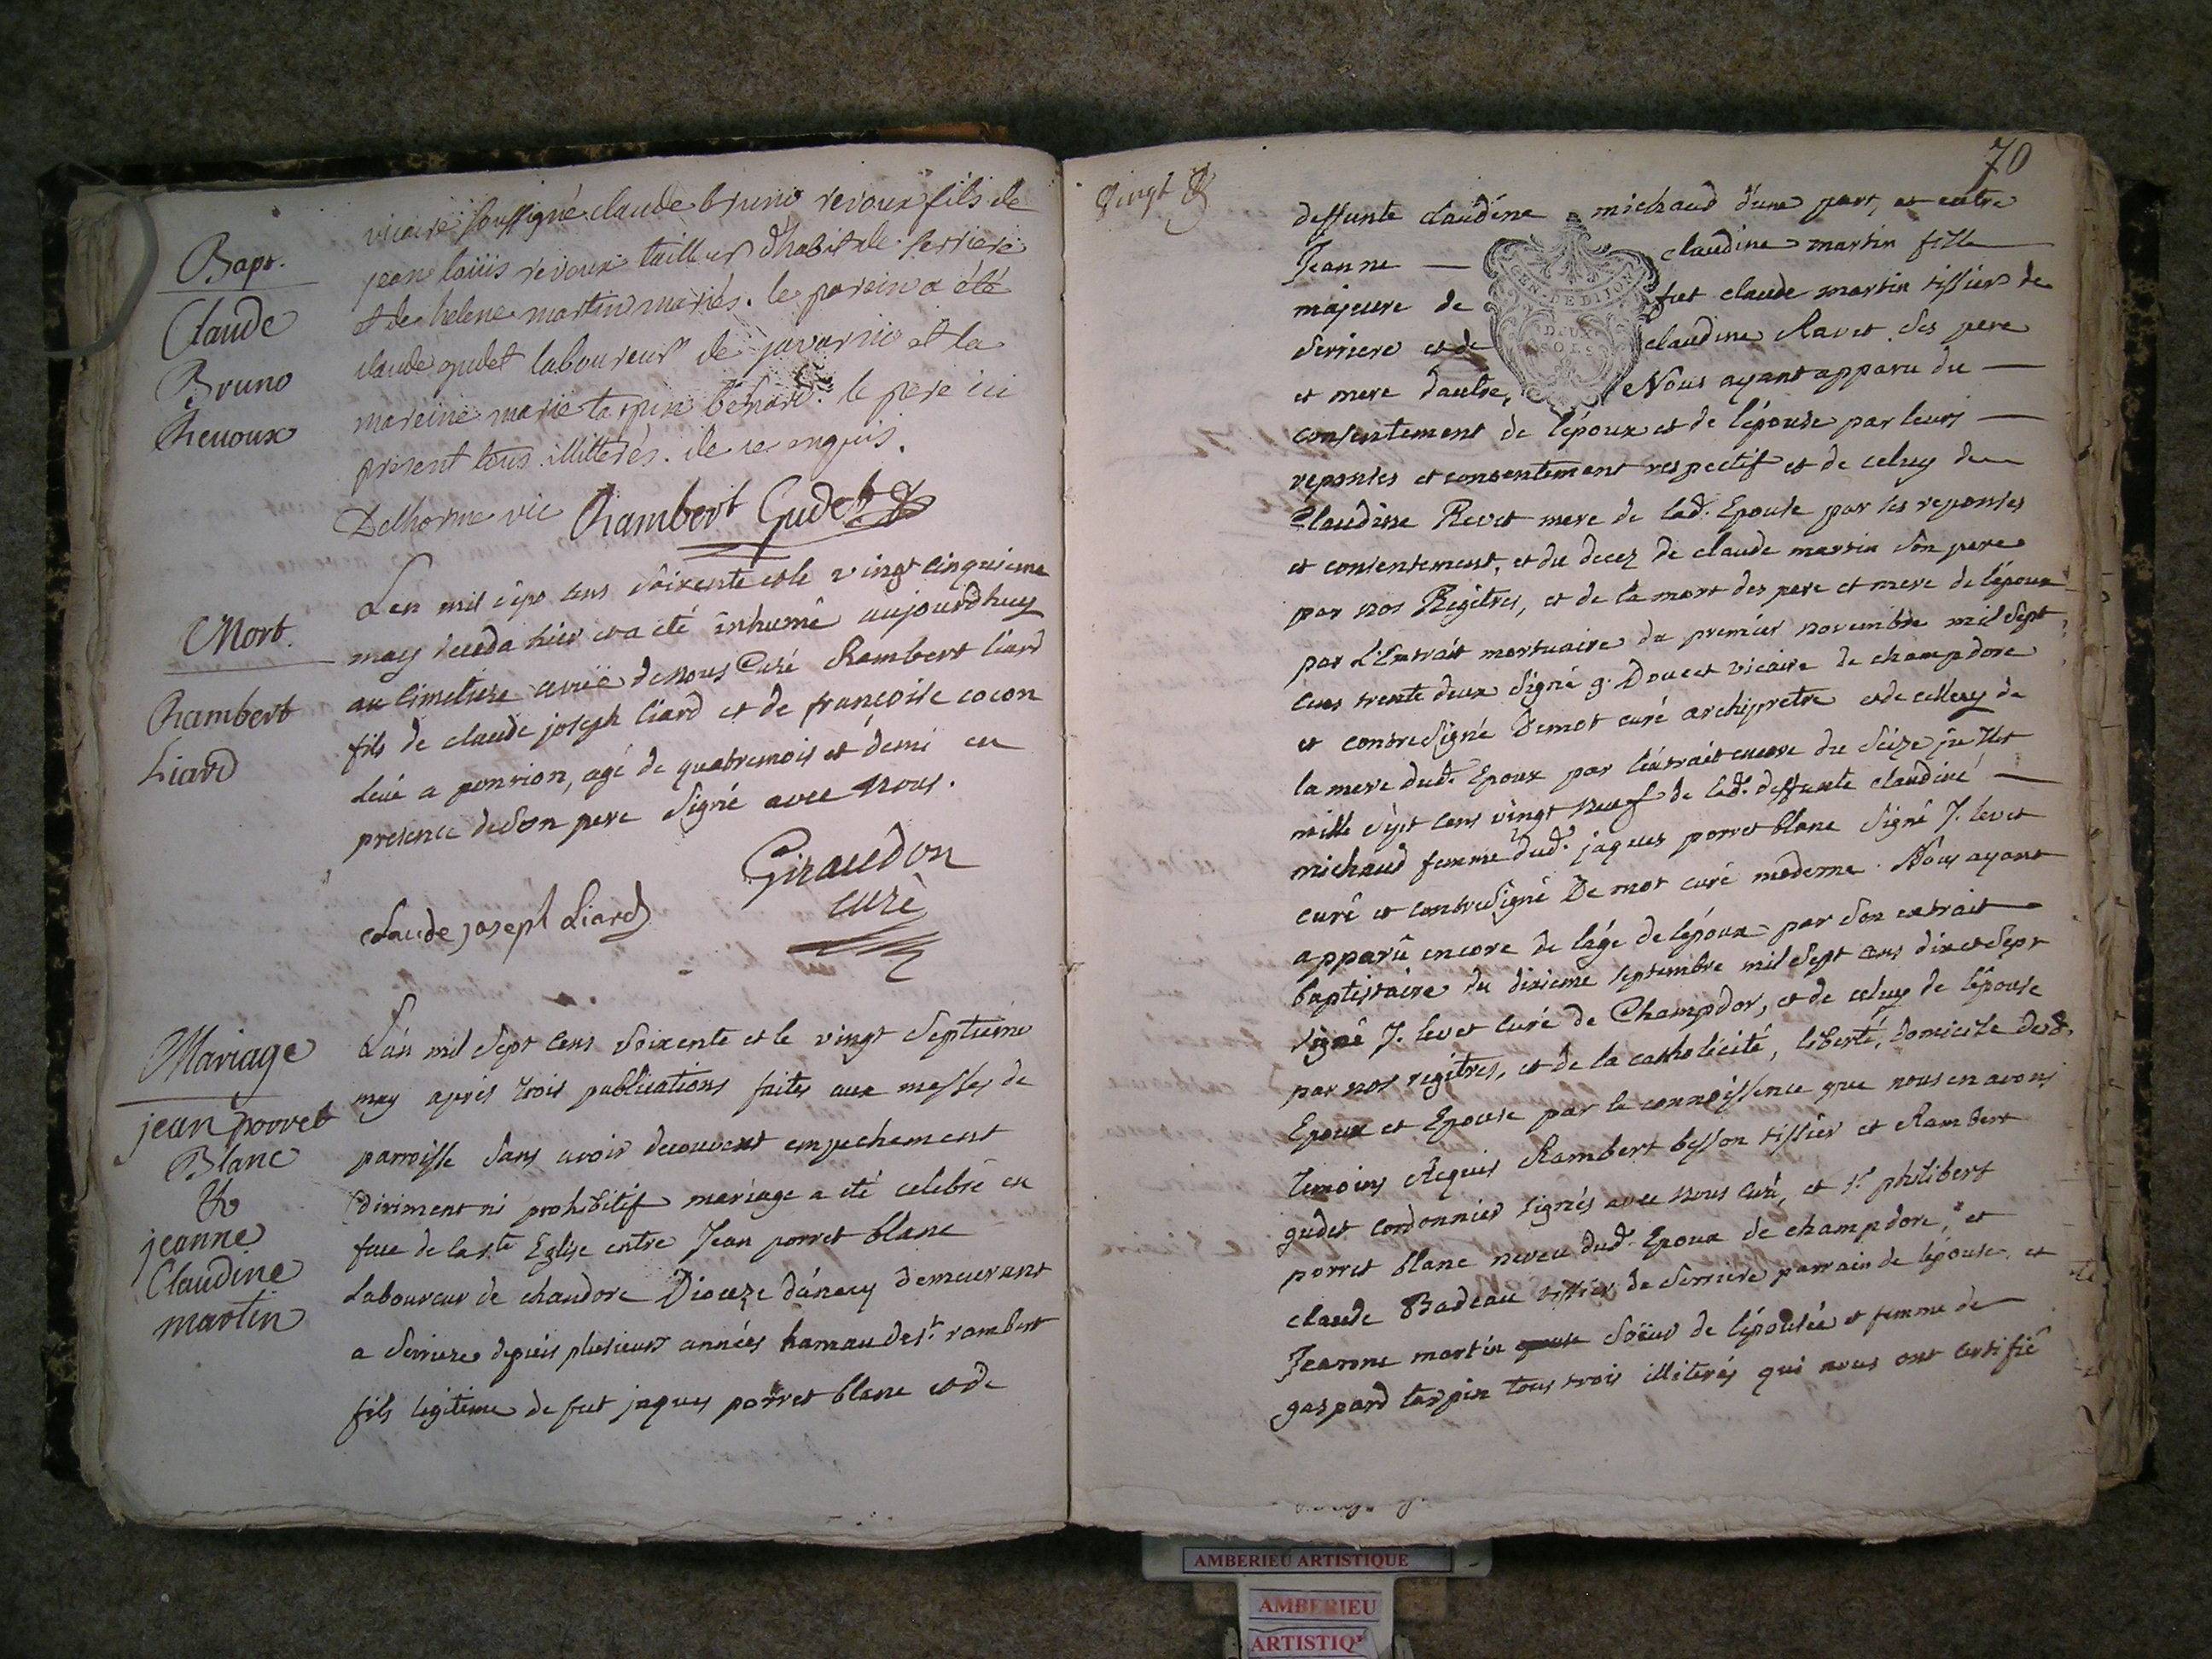 Bapt.
Claude
Bruno
Revoux
vicaire soussigné claude bruno revoux fils de
jean loüis revoux tailleur d'habit de serriere
et de helene martin mariés. le parein a été
claude gudet laboureur de javornio et la
mareine marie tarpin le pere ici
present tous illitterés. de ce enquis.
Delhorme vic Rambert Gudet
Mort.
Rambert
Liard
L'an mil sept cens soixente et le vingt cinquieme
may deceda hier et a été inhumé aujourdhuy
au cimetiere avec de nous Curé Rambert liard
fils de claude joseph liard et de françoise cocon
a pontion, agé de quatre mois et demi en
presence de son pere signé avec nous.
Giraudon
curé
Claude joseph Liard
Mariage
jean porret
Blanc
&
jeanne
Claudine
martin
L'an mil sept cens soixente et le vingt septieme
may après trois publications faites aux messes de
parroisse sans avoir decouvert empechement
dirimens ni prohibitif mariage a été celebré en
face de la ste Eglise entre Jean porret blanc
Laboureur de chandore Diocèze d'anecy demeurant
a serriere depuis plusieurs années hamau de st rambert
fils legitime de fut jaques porret blanc et de
Vingt
70
deffunte claudine michaud d'une part, et entre
Jeanne — claudine martin fille
majeure de fut claude martin tissier de
serriere et de claudine Ravet ses pere
et mere d'autre, Nous ayant apparu du —
GEN. DE DIJON
DEUX
SOLS
consentement de l'époux et de l'épouse par leurs —
reponses et consentement respectif et de celuy de
Claudine Revet mere de lad. Epouse par ses reponses
et consentement, et du decez de claude martin son pere
par nos Regîtres, et de la mort des pere et mere de l'époux
par L'Extrait mortuaire du premier novembre mil sept
cens trente deux signé g. Doucet vicaire de champdore
et contresigné Demot curé archiprêtre et de celuy de
la mere dud. Epoux par l'extrait encore du seize juillet
mille sept cens vingt neuf de lad. deffunte claudine —
michaud femme dud. jaques porret blanc signé J. levet
curé et contresigné De mot curé moderne. Nous ayant
apparu encore de l'âge de l'époux par son extrait
baptistaire du dixieme septembre mil sept cens dix et sept
signé J. levet curé de Champdor, et de celuy de l'épouse
par nos regîtres, et de la catholicité, liberté, domicile desd.
Epoux et Epouse par la connoissence que nous en avons
Temoins Requis Rambert besson tissier et Rambert
gudet cordonnier signés avec nous curé, et sr philibert
porret blanc neveu dud. Epoux de champdore, et
claude Badeau tissier de serriere parrain de l'épouse, et
Jeanne martin soeur de l'épousée et femme de
gaspard tarpin tous trois illiterés qui nous ont certifié
AMBERIEU ARTISTIQUE
AMBERIEU
ARTISTIQ